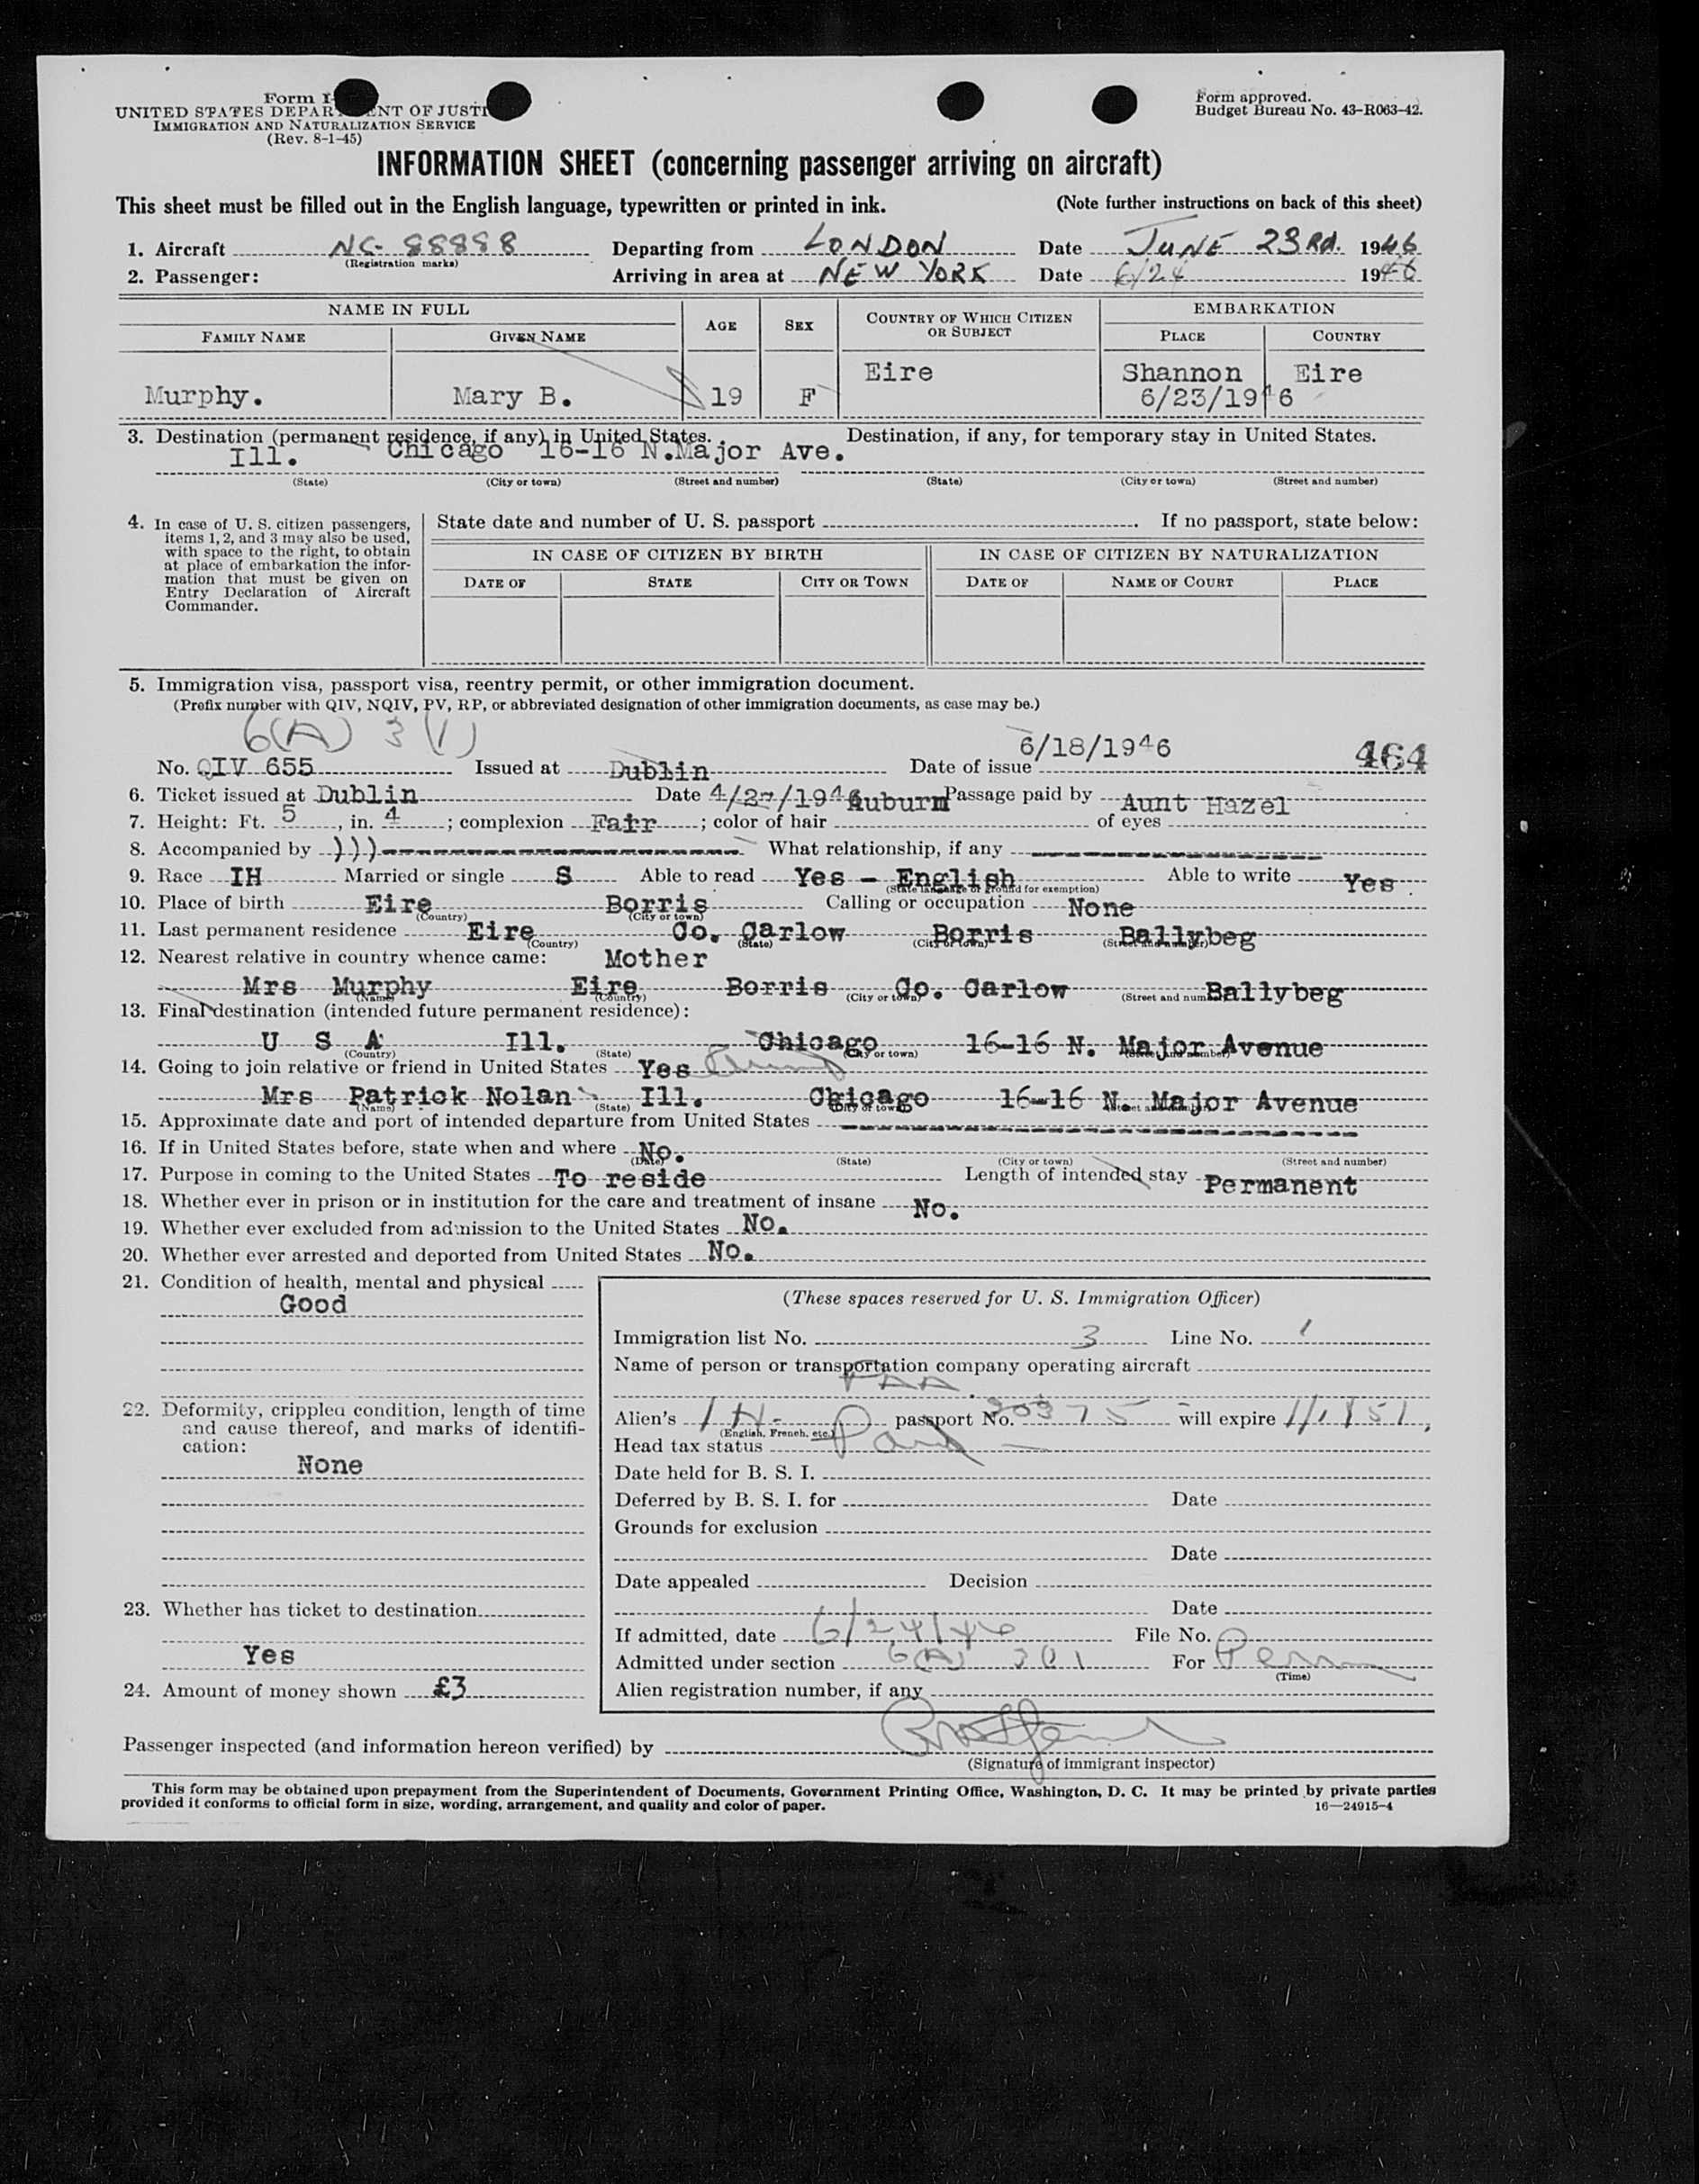 Form I-
UNITED STATES DEPARTMENT OF JUSTICE
IMMIGRATION AND NATURALIZATION SERVICE
(Rev. 8-1-45)
Form approved.
Budget Bureau No. 43-R063-42.
INFORMATION SHEET (concerning passenger arriving on aircraft)
This sheet must be filled out in the English language, typewritten or printed in ink. (Note further instructions on back of this sheet)
1. Aircraft NC-88888 Departing from LONDON Date JUNE 23Rd. 1946
(Registration marks)
2. Passenger: Arriving in area at NEW YORK Date 6/24 1946
NAME IN FULL AGE SEX COUNTRY OF WHICH CITIZEN OR SUBJECT EMBARKATION
FAMILY NAME GIVEN NAME PLACE COUNTRY
Eire Shannon Eire
Murphy. Mary B. 19 F 6/23/1946
3. Destination (permanent residence, if any) in United States. Destination, if any, for temporary stay in United States.
Ill. Chicago 16-16 N.Major Ave.
(State) (City or town) (Street and number) (State) (City or town) (Street and number)
4. In case of U. S. citizen passengers, items 1, 2, and 3 may also be used, with space to the right, to obtain at place of embarkation the information that must be given on Entry Declaration of Aircraft Commander.
State date and number of U. S. passport . If no passport, state below:
IN CASE OF CITIZEN BY BIRTH IN CASE OF CITIZEN BY NATURALIZATION
DATE OF STATE CITY OR TOWN DATE OF NAME OF COURT PLACE
5. Immigration visa, passport visa, reentry permit, or other immigration document.
(Prefix number with QIV, NQIV, PV, RP, or abbreviated designation of other immigration documents, as case may be.)
6(A) 3 (1)
No. QIV 655 Issued at Dublin Date of issue 6/18/1946 464
6. Ticket issued at Dublin Date 4/27/1946 Passage paid by Aunt
7. Height: Ft. 5, in. 4; complexion Fair; color of hair Auburn of eyes Hazel
8. Accompanied by ))) What relationship, if any
9. Race IH Married or single S Able to read Yes - English Able to write Yes
(State language or ground for exemption)
10. Place of birth Eire Borris Calling or occupation None
(Country) (City or town)
11. Last permanent residence Eire Co. Carlow Borris Ballybeg
(Country) (State) (City or town) (Street and number)
12. Nearest relative in country whence came: Mother
Mrs Murphy Eire Borris Co. Carlow Ballybeg
(Name) (Country) (City or town) (Street and number)
13. Final destination (intended future permanent residence):
U S A Ill. Chicago 16-16 N. Major Avenue
(Country) (State) (City or town) (Street and number)
14. Going to join relative or friend in United States Yes
Mrs Patrick Nolan Ill. Chicago 16-16 N. Major Avenue
(Name) (State) (City or town) (Street and number)
15. Approximate date and port of intended departure from United States
16. If in United States before, state when and where No.
(Date) (State) (City or town) (Street and number)
17. Purpose in coming to the United States To reside Length of intended stay Permanent
18. Whether ever in prison or in institution for the care and treatment of insane No.
19. Whether ever excluded from admission to the United States No.
20. Whether ever arrested and deported from United States No.
21. Condition of health, mental and physical
Good
22. Deformity, crippled condition, length of time and cause thereof, and marks of identification:
None
23. Whether has ticket to destination
Yes
24. Amount of money shown £3
(These spaces reserved for U. S. Immigration Officer)
Immigration list No. 3 Line No. 1
Name of person or transportation company operating aircraft
PAA
Alien's IH- passport No. will expire
(English, French, etc.)
Head tax status Paid
Date held for B. S. I.
Deferred by B. S. I. for Date
Grounds for exclusion
Date
Date appealed Decision
Date
If admitted, date 6/24/46 File No.
Admitted under section 6(A) 301 For Perm
(Time)
Alien registration number, if any
Passenger inspected (and information hereon verified) by
(Signature of immigrant inspector)
This form may be obtained upon prepayment from the Superintendent of Documents, Government Printing Office, Washington, D. C. It may be printed by private parties
provided it conforms to official form in size, wording, arrangement, and quality and color of paper. 16—24915-4